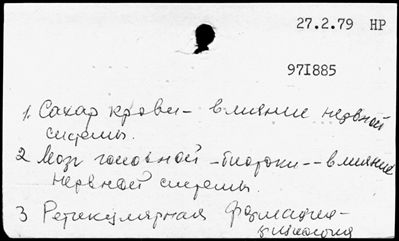 27.2.79 НР
97I885
1. Сахар крови - влияние нервной
системы.
2 Мозг головной - биотоки -- влияние
нервной системы.
3 Ретикулярная формация -
физиология